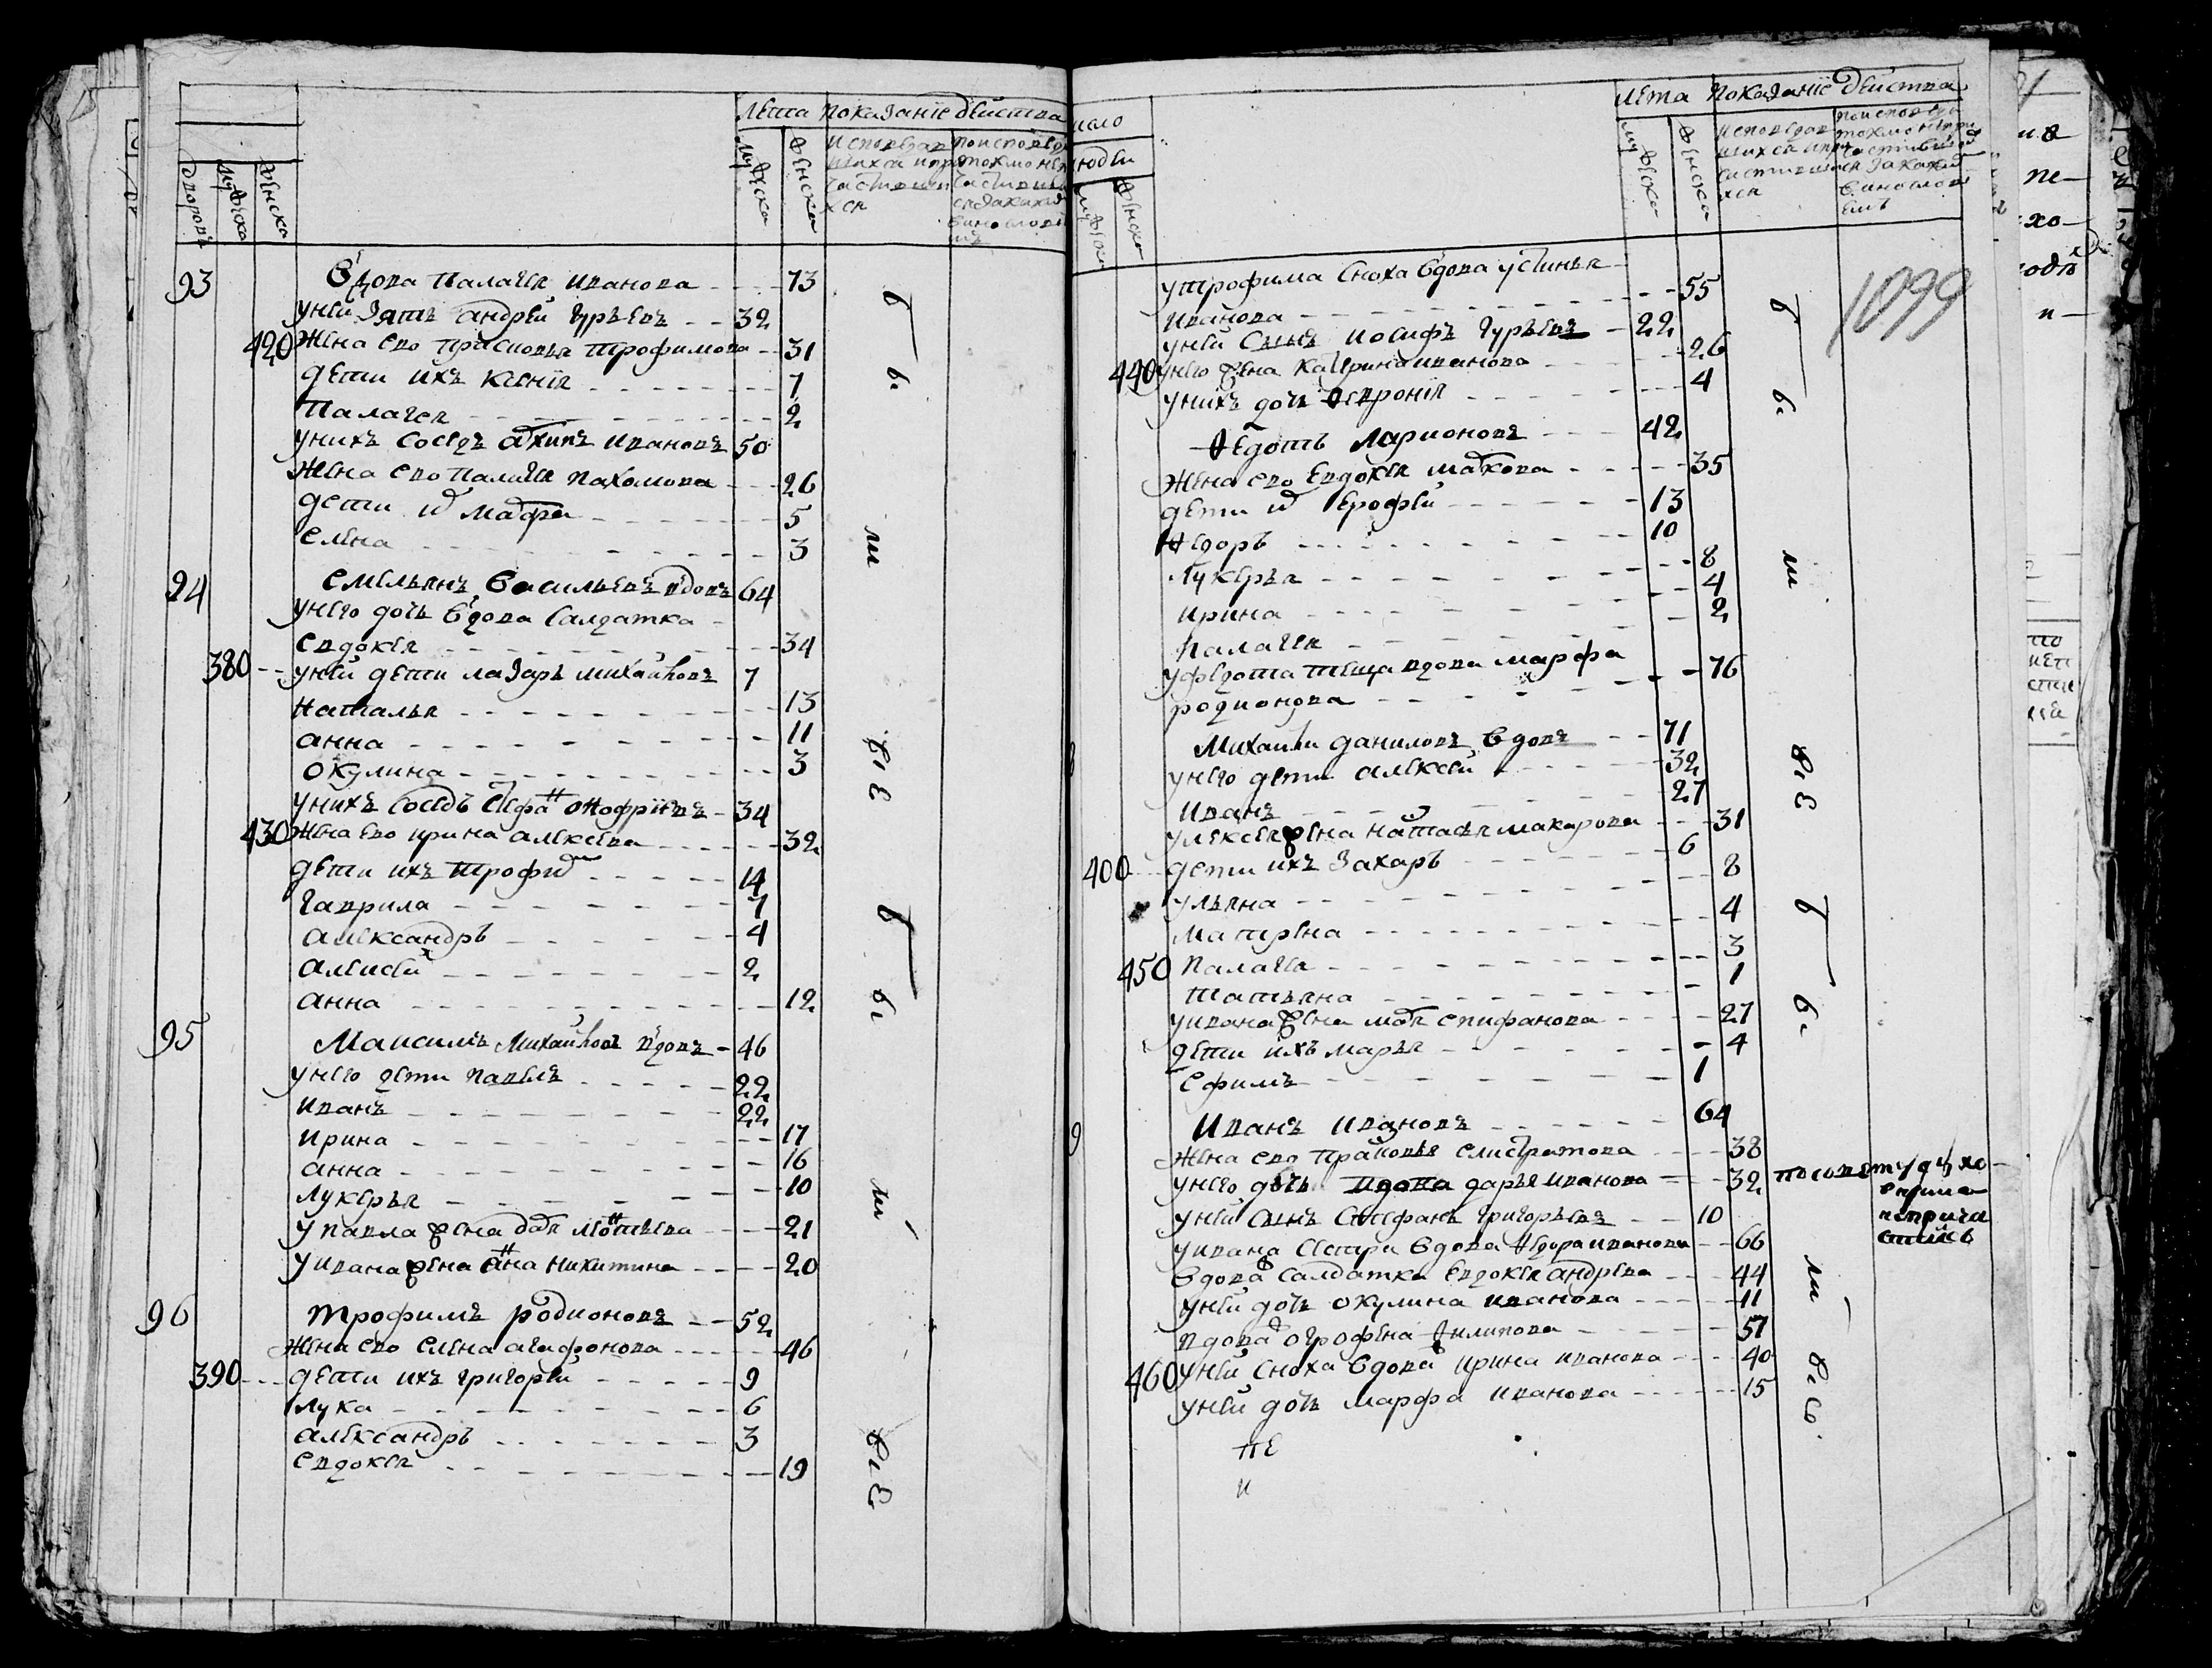 лета показанiе действа
дворовъ
мужска
женска
мужска
женска
исповедавшихся и причастившихся
93 вдова палагея иванова 73
у ней зять андрей гурьевъ 32
420 жена ево прасковья трофимова 31
дети ихъ ксенiя 7
палагея 2
у нихъ соседъ архипъ ивановъ 50
жена ево палагея пахомова 26
дети их марфа 5
елена 3
94 емельянъ васильевъ вдовъ 64
у него дочь вдова салдатка
евдокея 34
380 у ней дети лазарь михайловъ 7
наталья 13
анна 11
окулина 3
у нихъ соседъ стефан онофриевъ 34
430 жена ево ирина алексеева 32
дети ихъ трофим 14
гаврила 7
александръ 4
алексей 2
анна 12
95 максимъ михайловъ вдовъ 46
у него дети павелъ 22
иванъ 22
ирина 17
анна 16
лукерья 10
у павла жена даря мотвеева 21
у ивана жена анна никитина 20
96 трофимъ родионовъ 52
жена ево елена агафонова 46
390 дети ихъ григорей 9
лука 6
александръ 3
евдокея 19
бы
ли
все
бы
ли
все
лета показанiе действа
число
людей
мужска
женска
мужска
женска
1099
у трофима сноха вдова устинья
иванова 55
у ней сынъ иосифъ гурьевъ 22
440 у него жена катерина иванова 26
у нихъ дочь февронiя 4
федотъ ларионовъ 42
жена ево евдокея маркова 35
дети их ерофей 13
федоръ 10
лукерья 8
ирина 4
палагея 2
у федота теща вдова марфа
родионова 76
михайла даниловъ вдовъ 71
у него дети алексей 32
иванъ 27
у алексея жена настасья макарова 31
400 дети ихъ захаръ 6
ульяна 8
матрена 4
450 палагея 3
татьяна 1
у ивана жена марья епифанова 27
дети ихъ марья 4
ефимъ 1
9 иванъ ивановъ 64
жена ево прасковья елистратова 38
у него дочь вдова дарья иванова 32 по совету духовника не причастилась
у ней сынъ стефанъ григорьевъ 10
у ивана сестра вдова федора иванова 66
вдова салдатка евдокея андреева 44
у ней дочь окулина иванова 11
вдова огрофена филипова 57
460 у ней сноха вдова ирина иванова 40
у ней дочь марфа иванова 15
пе
и
бы
ли
все
бы
ли
все